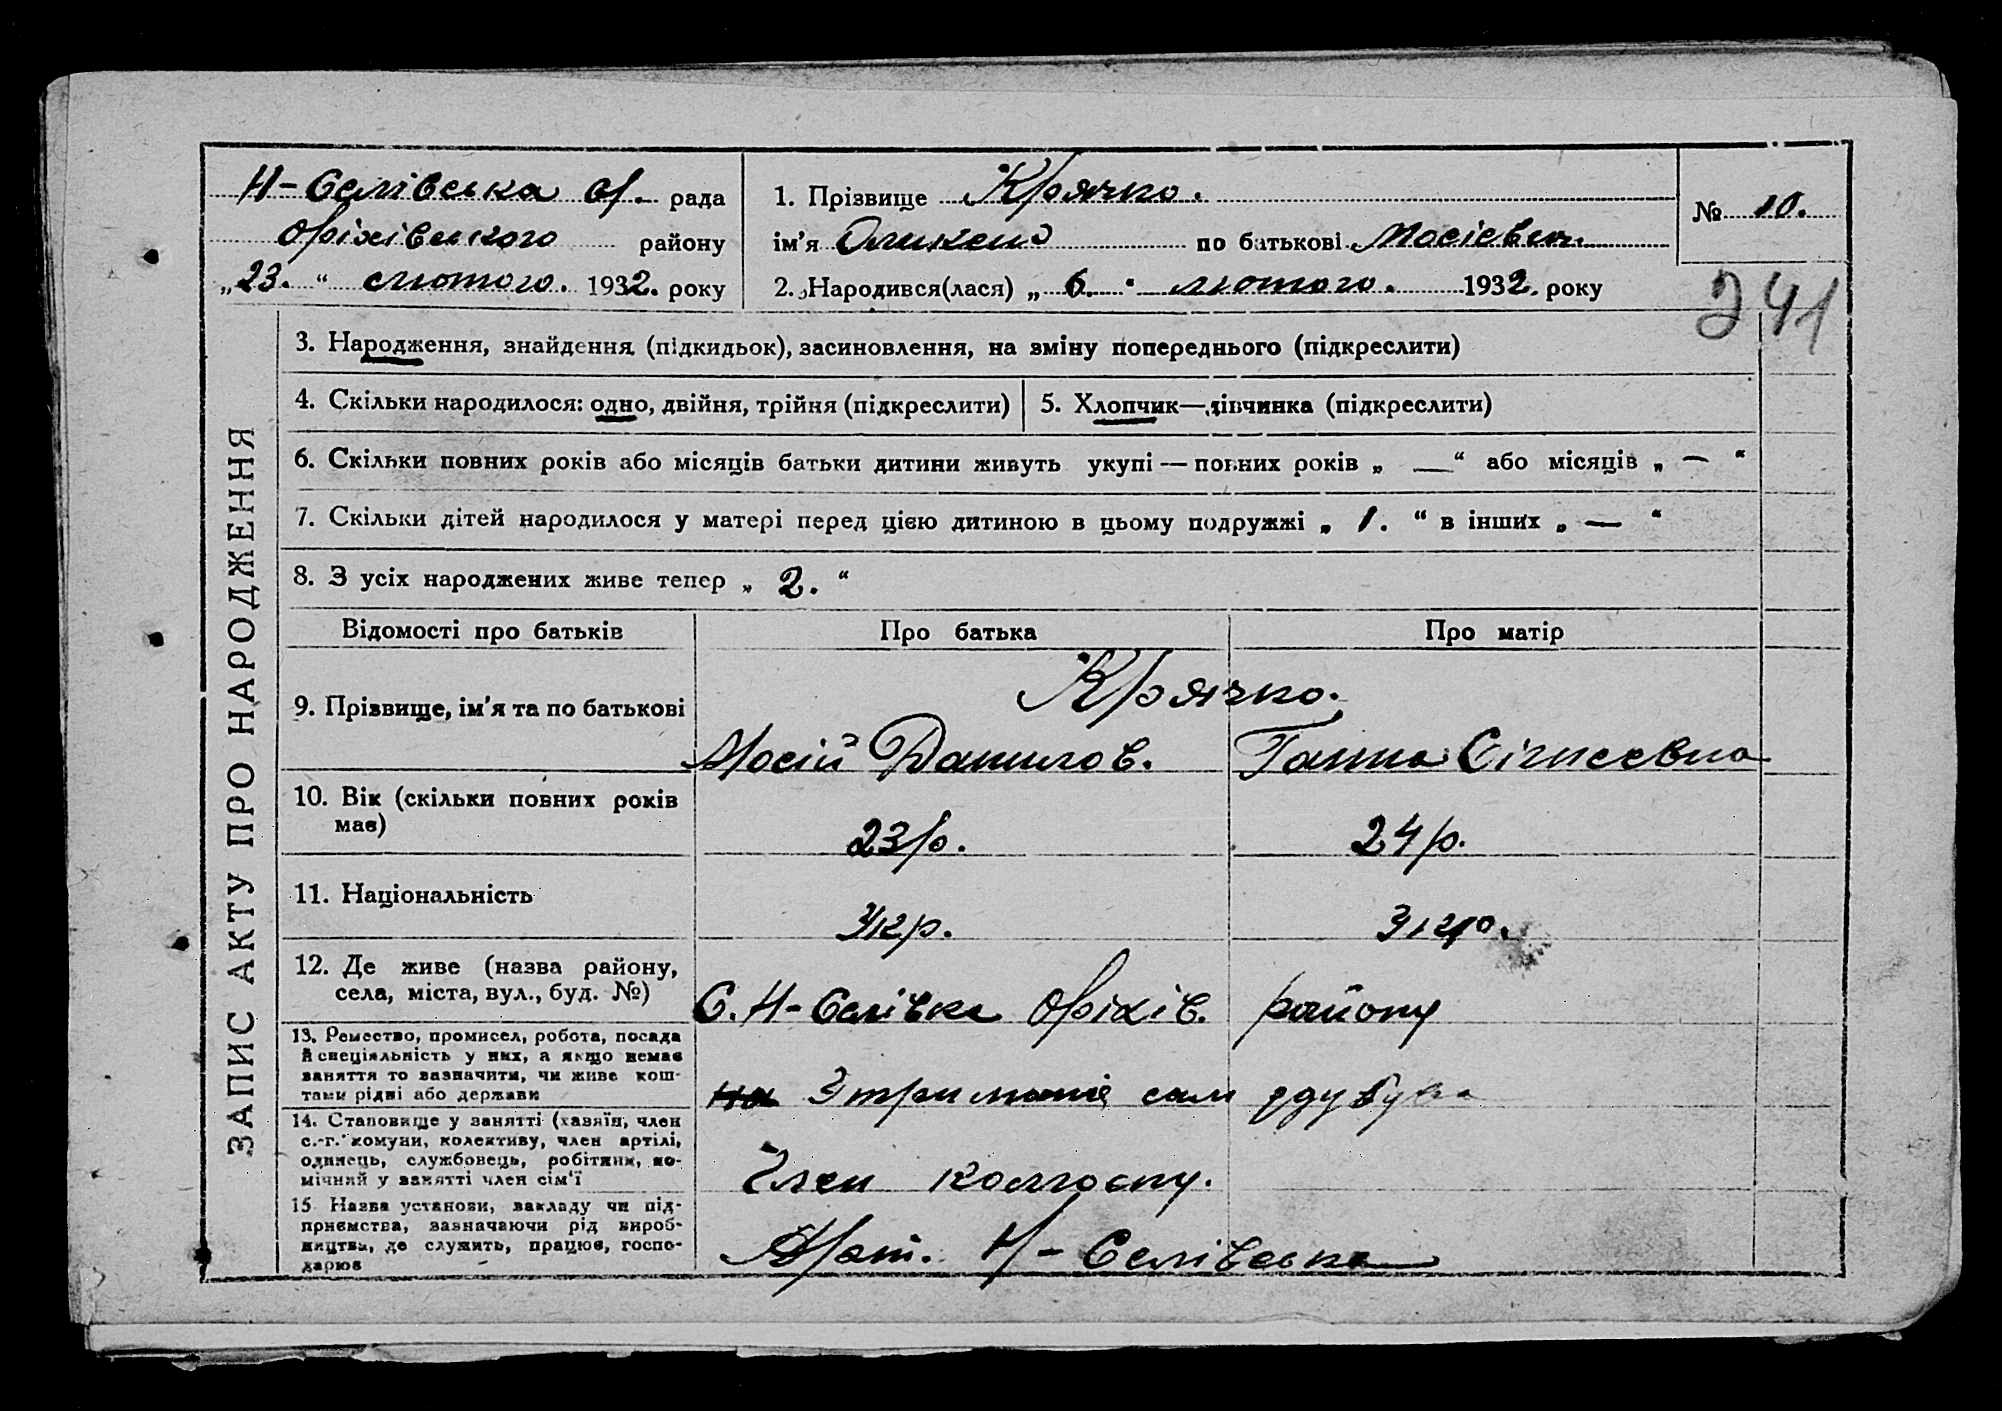 Н-Селівська с/. рада
Оріхівського району
„23.“ лютого. 1932. року
1. Прізвище Крячко.
ім'я Оликсій по батькові Мосієвич.
2. Народився(лася) „6.“ лютого. 1932. року
№ 10.
241
ЗАПИС АКТУ ПРО НАРОДЖЕННЯ
3. Народження, знайдення (підкидьок), засиновлення, на зміну попереднього (підкреслити)
4. Скільки народилося: одно, двійня, трійня (підкреслити)
5. Хлопчик—дівчинка (підкреслити)
6. Скільки повних років або місяців батьки дитини живуть укупі — повних років „ — “ або місяців „ — “
7. Скільки дітей народилося у матері перед цією дитиною в цьому подружжі „ 1. “ в інших „ — “
8. З усіх народжених живе тепер „ 2. “
Відомості про батьків Про батька Про матір
Крячко.
9. Прізвище, ім'я та по батькові
Мосій Данилов. Ганна
10. Вік (скільки повних років
має)
23 р. 24 р.
11. Національність
Укр. Укр.
12. Де живе (назва району,
села, міста, вул., буд. №)
С. Н-Селівка Оріхів. району
13. Ремество, промисел, робота, посада
й спеціяльність у них, а якщо немає
заняття то зазначити, чи живе кош-
тами рідні або держави
на Утриманні сам
14. Становище у занятті (хазяїн, член
с.-г. комуни, колективу, член артілі,
одинець, службовець, робітник, по-
мічний у занятті член сім'ї
Член колгоспу.
15 Назва установи, закладу чи під-
приємства, зазначаючи рід вироб-
ництва, де служить, працює, госпо-
дарює
Арт. Н-Селівська